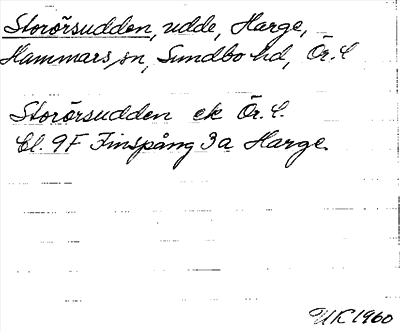 Storörsudden, udde, Harge,
Hammars sn, Sundbo hd, Ör. L
Storörsudden ek Ör. L.
bl. 9F Finspång 3a Harge.
UK 1960